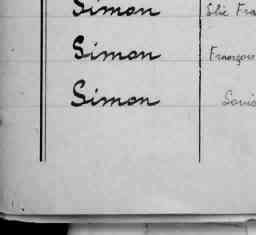 Simon Elie Fra
Simon François
Simon Louis